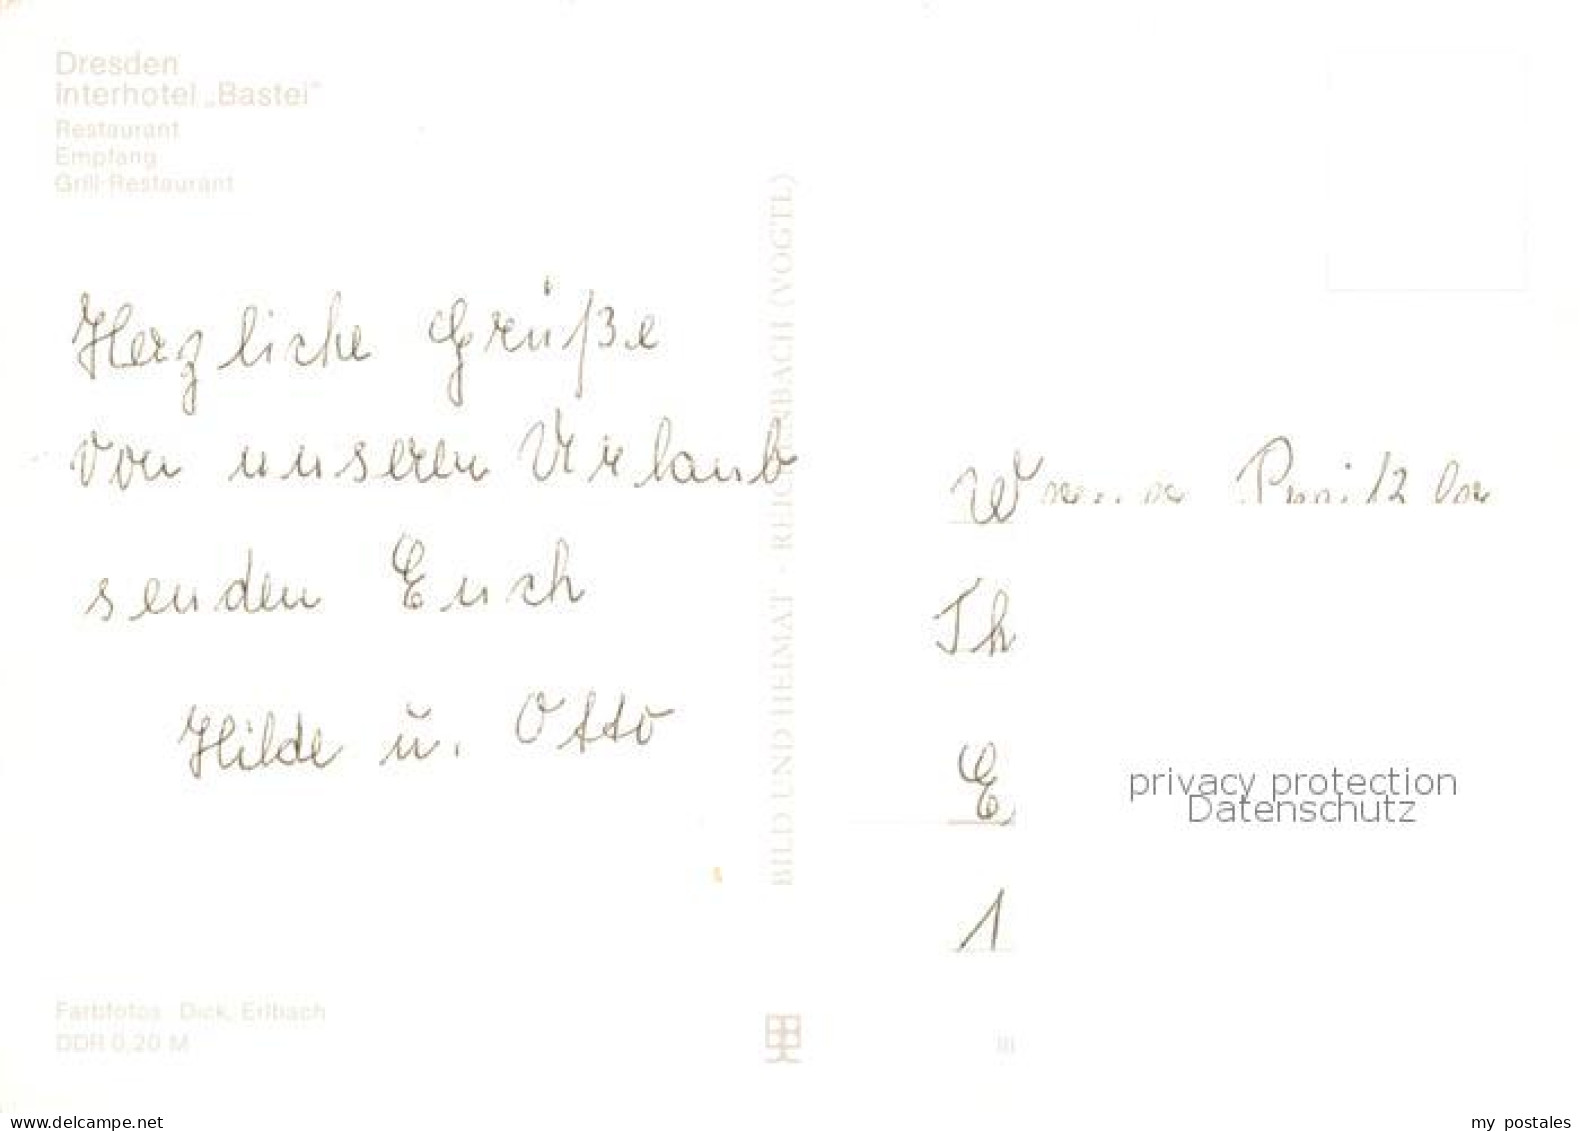 Dresden
Interhotel „Bastei“
Restaurant
Empfang
Grill-Restaurant
Herzliche Grüße
von unseren Urlaub
senden Euch
Hilde u. Otto
BILD UND HEIMAT · REICHENBACH (VOGTL)
Th
E
1
privacy protection
Datenschutz
Farbfotos: Dick, Erlbach
DDR 0,20 M
III
www.delcampe.net
my_postales